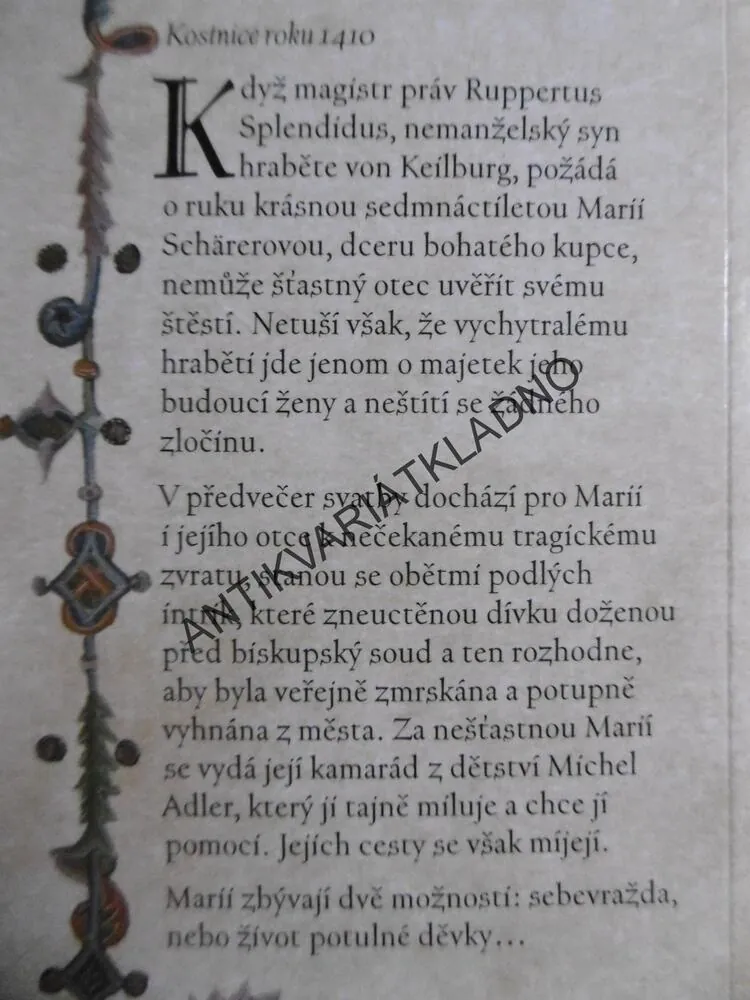 Kostnice roku 1410
Když magistr práv Ruppertus
Splendidus, nemanželský syn
hraběte von Keilburg, požádá
o ruku krásnou sedmnáctiletou Marii
Schärerovou, dceru bohatého kupce,
nemůže šťastný otec uvěřit svému
štěstí. Netuší však, že vychytralému
hraběti jde jenom o majetek jeho
budoucí ženy a neštítí se žádného
zločinu.
V předvečer svatby dochází pro Marii
i jejího otce k nečekanému tragickému
zvratu, stanou se obětmi podlých
intrik, které zneuctěnou dívku doženou
před biskupský soud a ten rozhodne,
aby byla veřejně zmrskána a potupně
vyhnána z města. Za nešťastnou Marií
se vydá její kamarád z dětství Michel
Adler, který ji tajně miluje a chce jí
pomoci. Jejich cesty se však míjejí.
Marii zbývají dvě možnosti: sebevražda,
nebo život potulné děvky...
ANTIKVARIÁTKLADNO